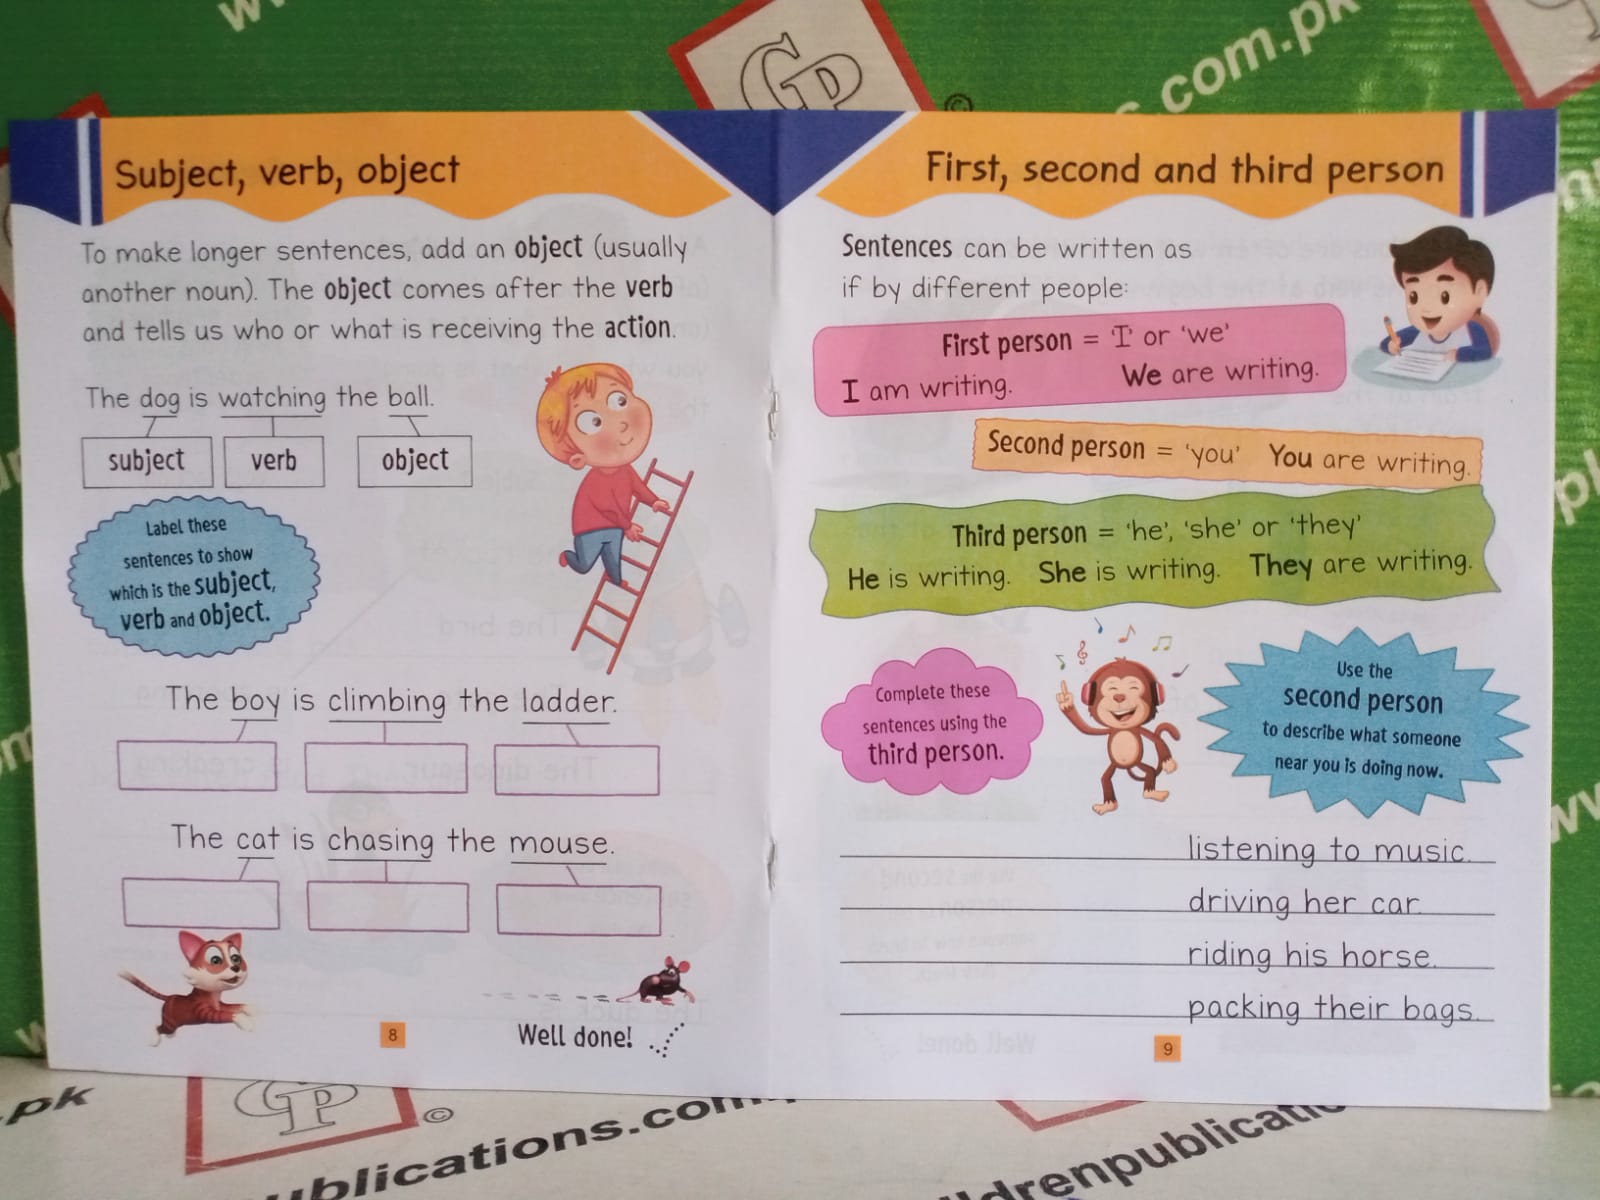 Subject, verb, object
To make longer sentences, add an object (usually
another noun). The object comes after the verb
and tells us who or what is receiving the action.
The dog is watching the ball.
subject verb object
Label these
sentences to show
which is the subject,
verb and object.
The boy is climbing the ladder.
The cat is chasing the mouse.
8
Well done!
First, second and third person
Sentences can be written as
if by different people:
First person = 'I' or 'we'
I am writing. We are writing.
Second person = 'you' You are writing.
Third person = 'he', 'she' or 'they'
He is writing. She is writing. They are writing.
Complete these
sentences using the
third person.
Use the
second person
to describe what someone
near you is doing now.
listening to music.
driving her car.
riding his horse.
packing their bags.
9
.com.pk
GP
©
.pk
GP
©